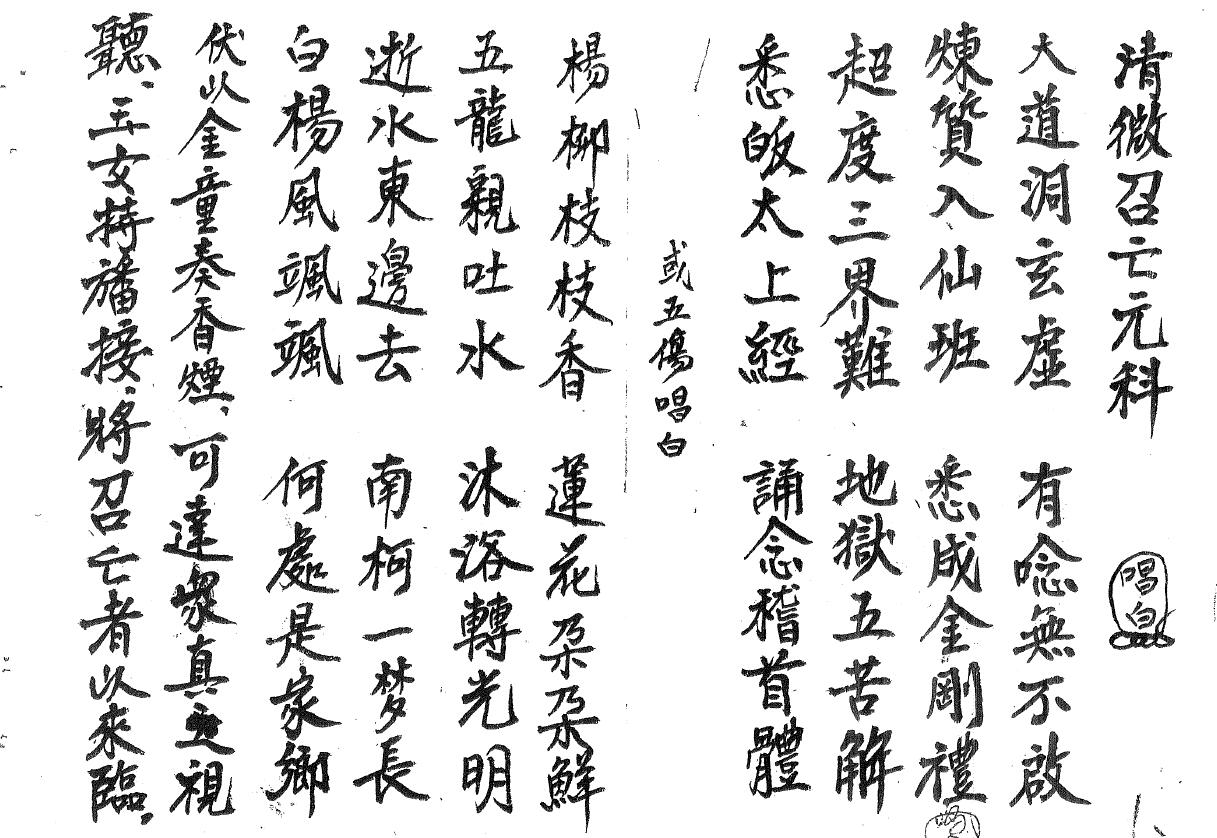 清微召亡元科 唱白
大道洞玄虛 有唸無不啟
煉質入仙班 悉成金剛禮
超度三界難 地獄五苦解
悉皈太上經 誦念稽首體
或五傷唱白
楊柳枝枝香 蓮花朵朵鮮
五龍親吐水 沐浴轉光明
逝水東邊去 南柯一梦長
白楊風颯颯 何處是家鄉
伏以金童奏香煙、可達衆真之視
聽、玉女持旛接、將召亡者以來臨、